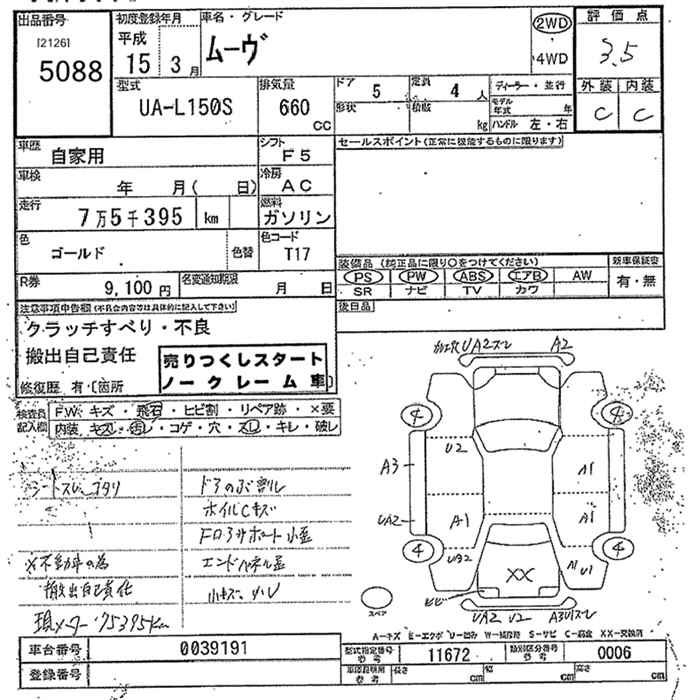 出品番号 初度登録年月 車名・グレード 評価点
I21261 平成 2WD
5088 15年3月 ムーヴ 4WD 3.5
型式 排気量 ドア 5 定員 4人 ディーラー・並行 外装 内装
UA-L150S 660 形状 積載 モデル年式 年 C C
CC kg ハンドル 左・右
車歴 自家用 シフト F5 セールスポイント(正常に機能するものに限ります)
車検 年 月( 日) 冷房 AC
走行 7万5千395 km 燃料 ガソリン
色 ゴールド 色替 色コード T17
装備品(純正品に限り○をつけてください) 新車保証書
PS PW ABS エアB AW 有・無
SR ナビ TV カワ
R券 9,100円 名変通知期限 月 日
後日品
注意事項申告欄(不具合内容等は具体的に記入して下さい)
クラッチすべり・不良
搬出自己責任
売りつくしスタート
ノークレーム車
修復歴 有(箇所
検査員記入欄 F.W. キズ・飛石・ヒビ割・リペア跡・×要
内装 キズ・汚レ・コゲ・穴・スレ・キレ・破レ
UA2スレ A2
4 4
U2
A3 A1
UA2 A1 A1
UB2 A1 U1
4 4
XX
ヒビ
UA2 U2 A3U1スレ
スペア
ドアのぶ割れ
ホイルCキズ
エンドパネル歪
小キズ、小U
※不動車の為
搬出自己責任
現メーター75395km
A-キズ E-エクボ U-凹み W-補修跡 S-サビ C-腐食 XX-交換済
車台番号 0039191
登録番号
型式指定番号 参考 11672 類別区分番号 参考 0006
車庫証明用 参考 長さ cm 幅 cm 高さ cm